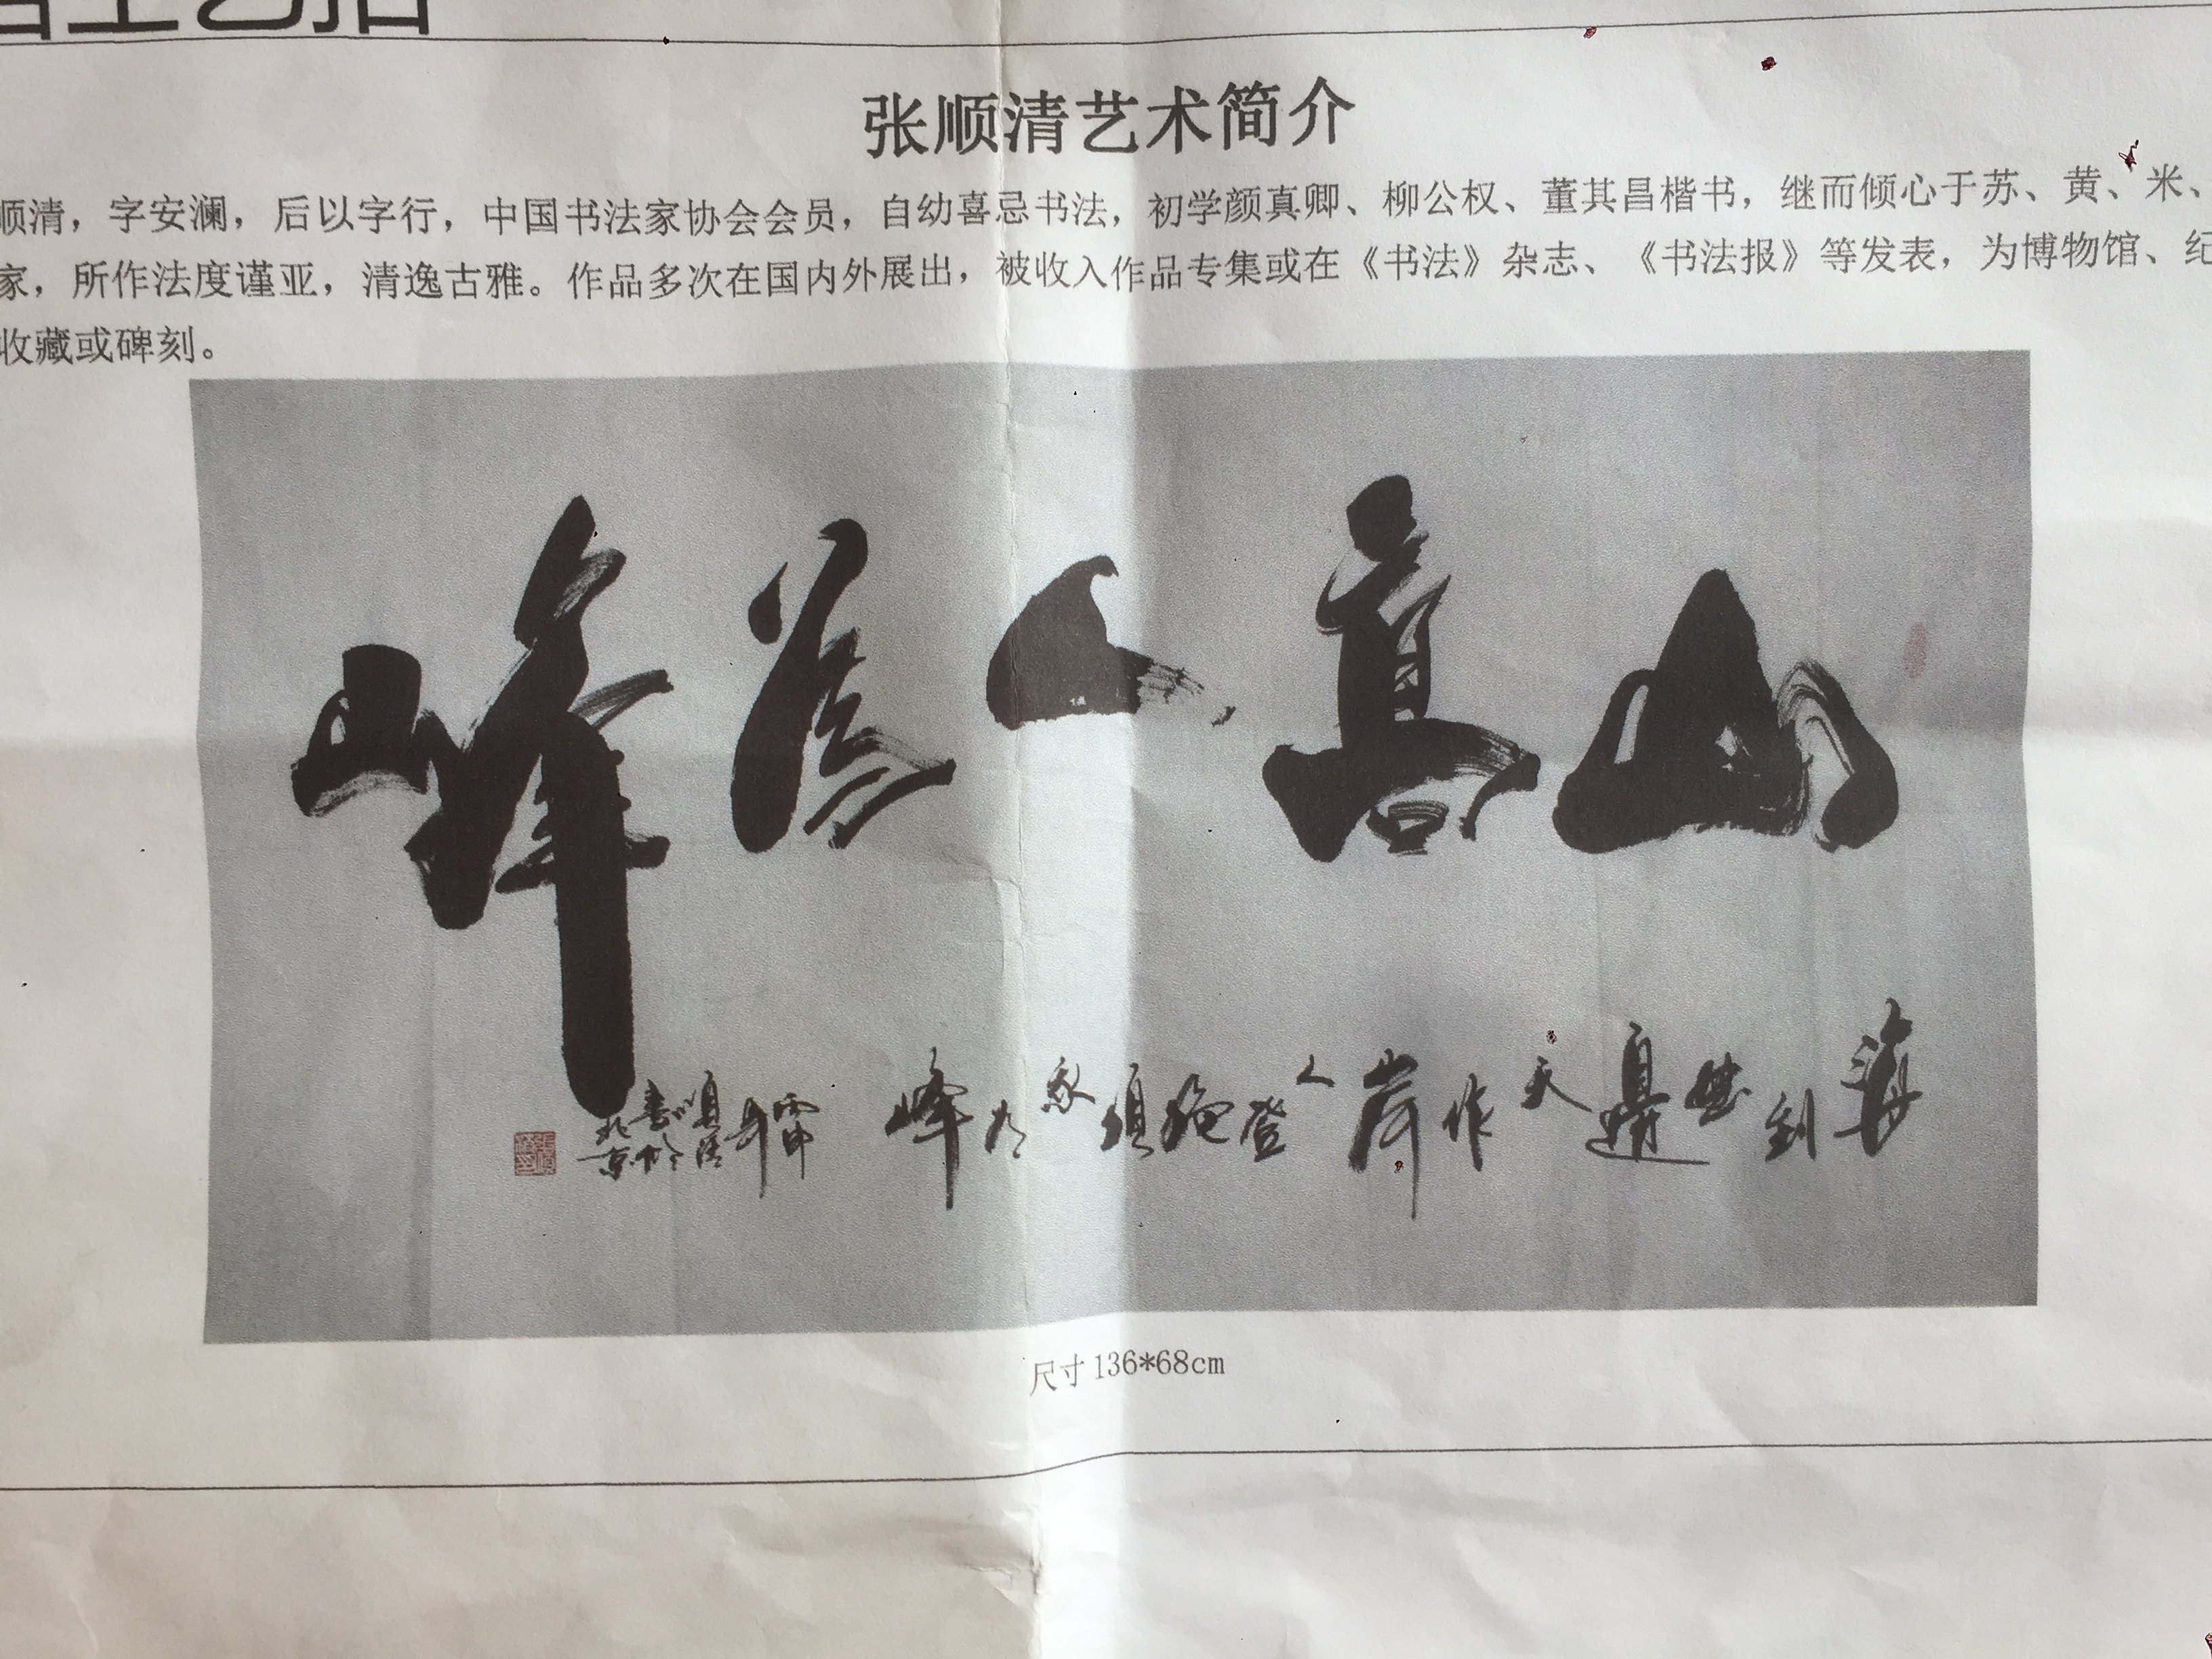 张顺清艺术简介
顺清，字安澜，后以字行，中国书法家协会会员，自幼喜忌书法，初学颜真卿、柳公权、董其昌楷书，继而倾心于苏、黄、米、
家，所作法度谨亚，清逸古雅。作品多次在国内外展出，被收入作品专集或在《书法》杂志、《书法报》等发表，为博物馆、纪
收藏或碑刻。
山高人为峰
海到无边天作岸人登绝顶我为峰
丙申年
顺清
书於
北京
尺寸136*68cm